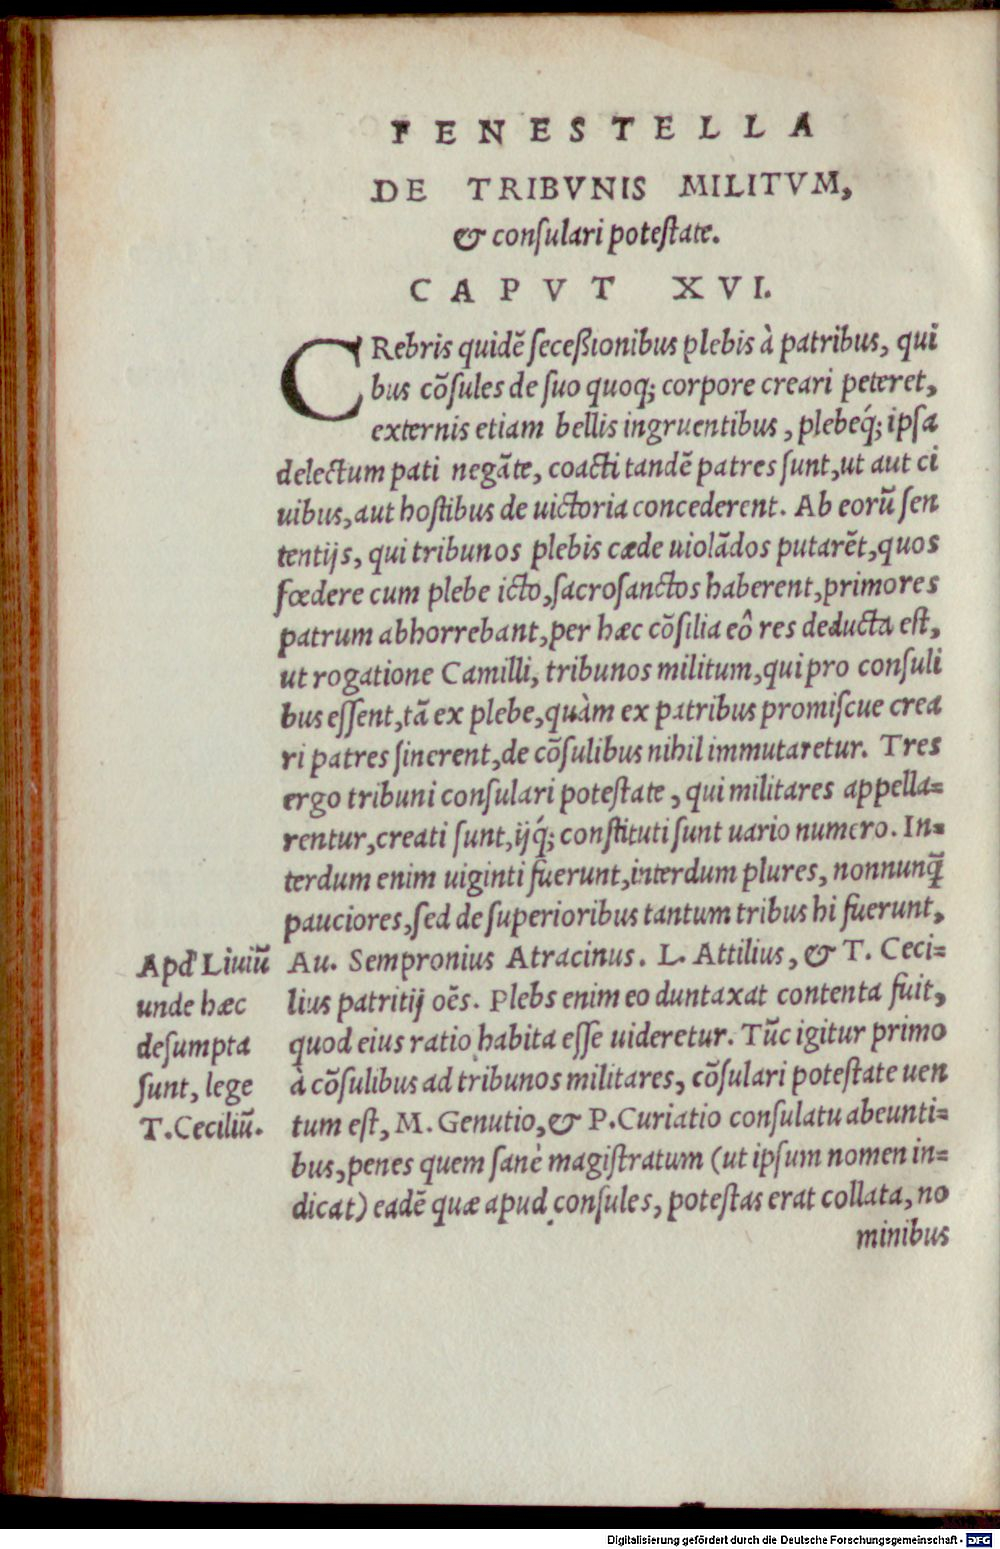 FENESTELLA
DE TRIBVNIS MILITVM,
& conſulari poteſtate.
CAPVT XVI.
CRebris quidē ſeceßionibus plebis à patribus, qui
bus cōſules de ſuo quoq; corpore creari peteret,
externis etiam bellis ingruentibus, plebeq́; ipſa
delectum pati negāte, coacti tandē patres ſunt, ut aut ci
uibus, aut hoſtibus de uictoria concederent. Ab eorū ſen
tentijs, qui tribunos plebis cæde uiolādos putarēt, quos
fœdere cum plebe icto, ſacroſanctos haberent, primores
patrum abhorrebant, per hæc cōſilia eô res deducta eſt,
ut rogatione Camilli, tribunos militum, qui pro conſuli
bus eſſent, tā ex plebe, quàm ex patribus promiſcue crea
ri patres ſinerent, de cōſulibus nihil immutaretur. Tres
ergo tribuni conſulari poteſtate, qui militares appella=
rentur, creati ſunt, ijq́; conſtituti ſunt uario numero. In=
terdum enim uiginti fuerunt, interdum plures, nonnunq̃
pauciores, ſed de ſuperioribus tantum tribus hi fuerunt,
Au. Sempronius Atracinus. L. Attilius, & T. Ceci=
lius patritij oēs. Plebs enim eo duntaxat contenta fuit,
quod eius ratio habita eſſe uideretur. Tūc igitur primo
à cōſulibus ad tribunos militares, cōſulari poteſtate uen
tum eſt, M. Genutio, & P. Curiatio conſulatu abeunti=
bus, penes quem ſanè magiſtratum (ut ipſum nomen in=
dicat) eadē quæ apud conſules, poteſtas erat collata, no
minibus
Apd' Liuiū
unde hæc
deſumpta
ſunt, lege
T. Ceciliū.
Digitalisierung gefördert durch die Deutsche Forschungsgemeinschaft - DFG